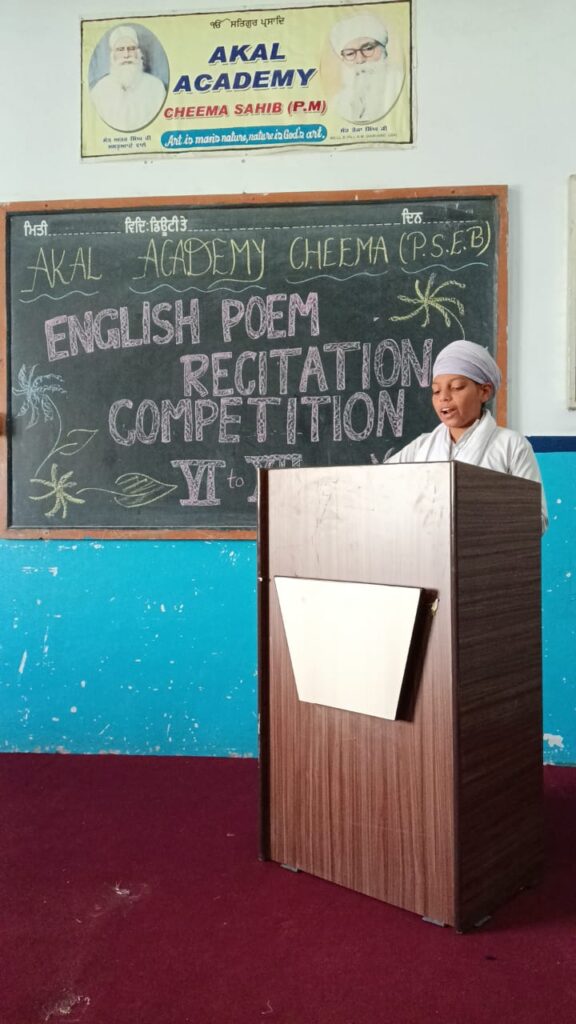 ੴ ਸਤਿਗੁਰ ਪ੍ਰਸਾਦਿ
AKAL
ACADEMY
CHEEMA SAHIB (P.M)
Art is man's nature, nature is God's art.
ਸੰਤ ਅਤਰ ਸਿੰਘ ਜੀ
ਮਸਤੂਆਣੇ ਵਾਲੇ
ਸੰਤ ਤੇਜਾ ਸਿੰਘ ਜੀ
ਮਿਤੀ ਵਿਦਿ:ਡਿਊਟੀ ਤੇ ਦਿਨ
AKAL ACADEMY CHEEMA (P.S.E.B)
ENGLISH POEM
RECITATION
COMPETITION
VI to